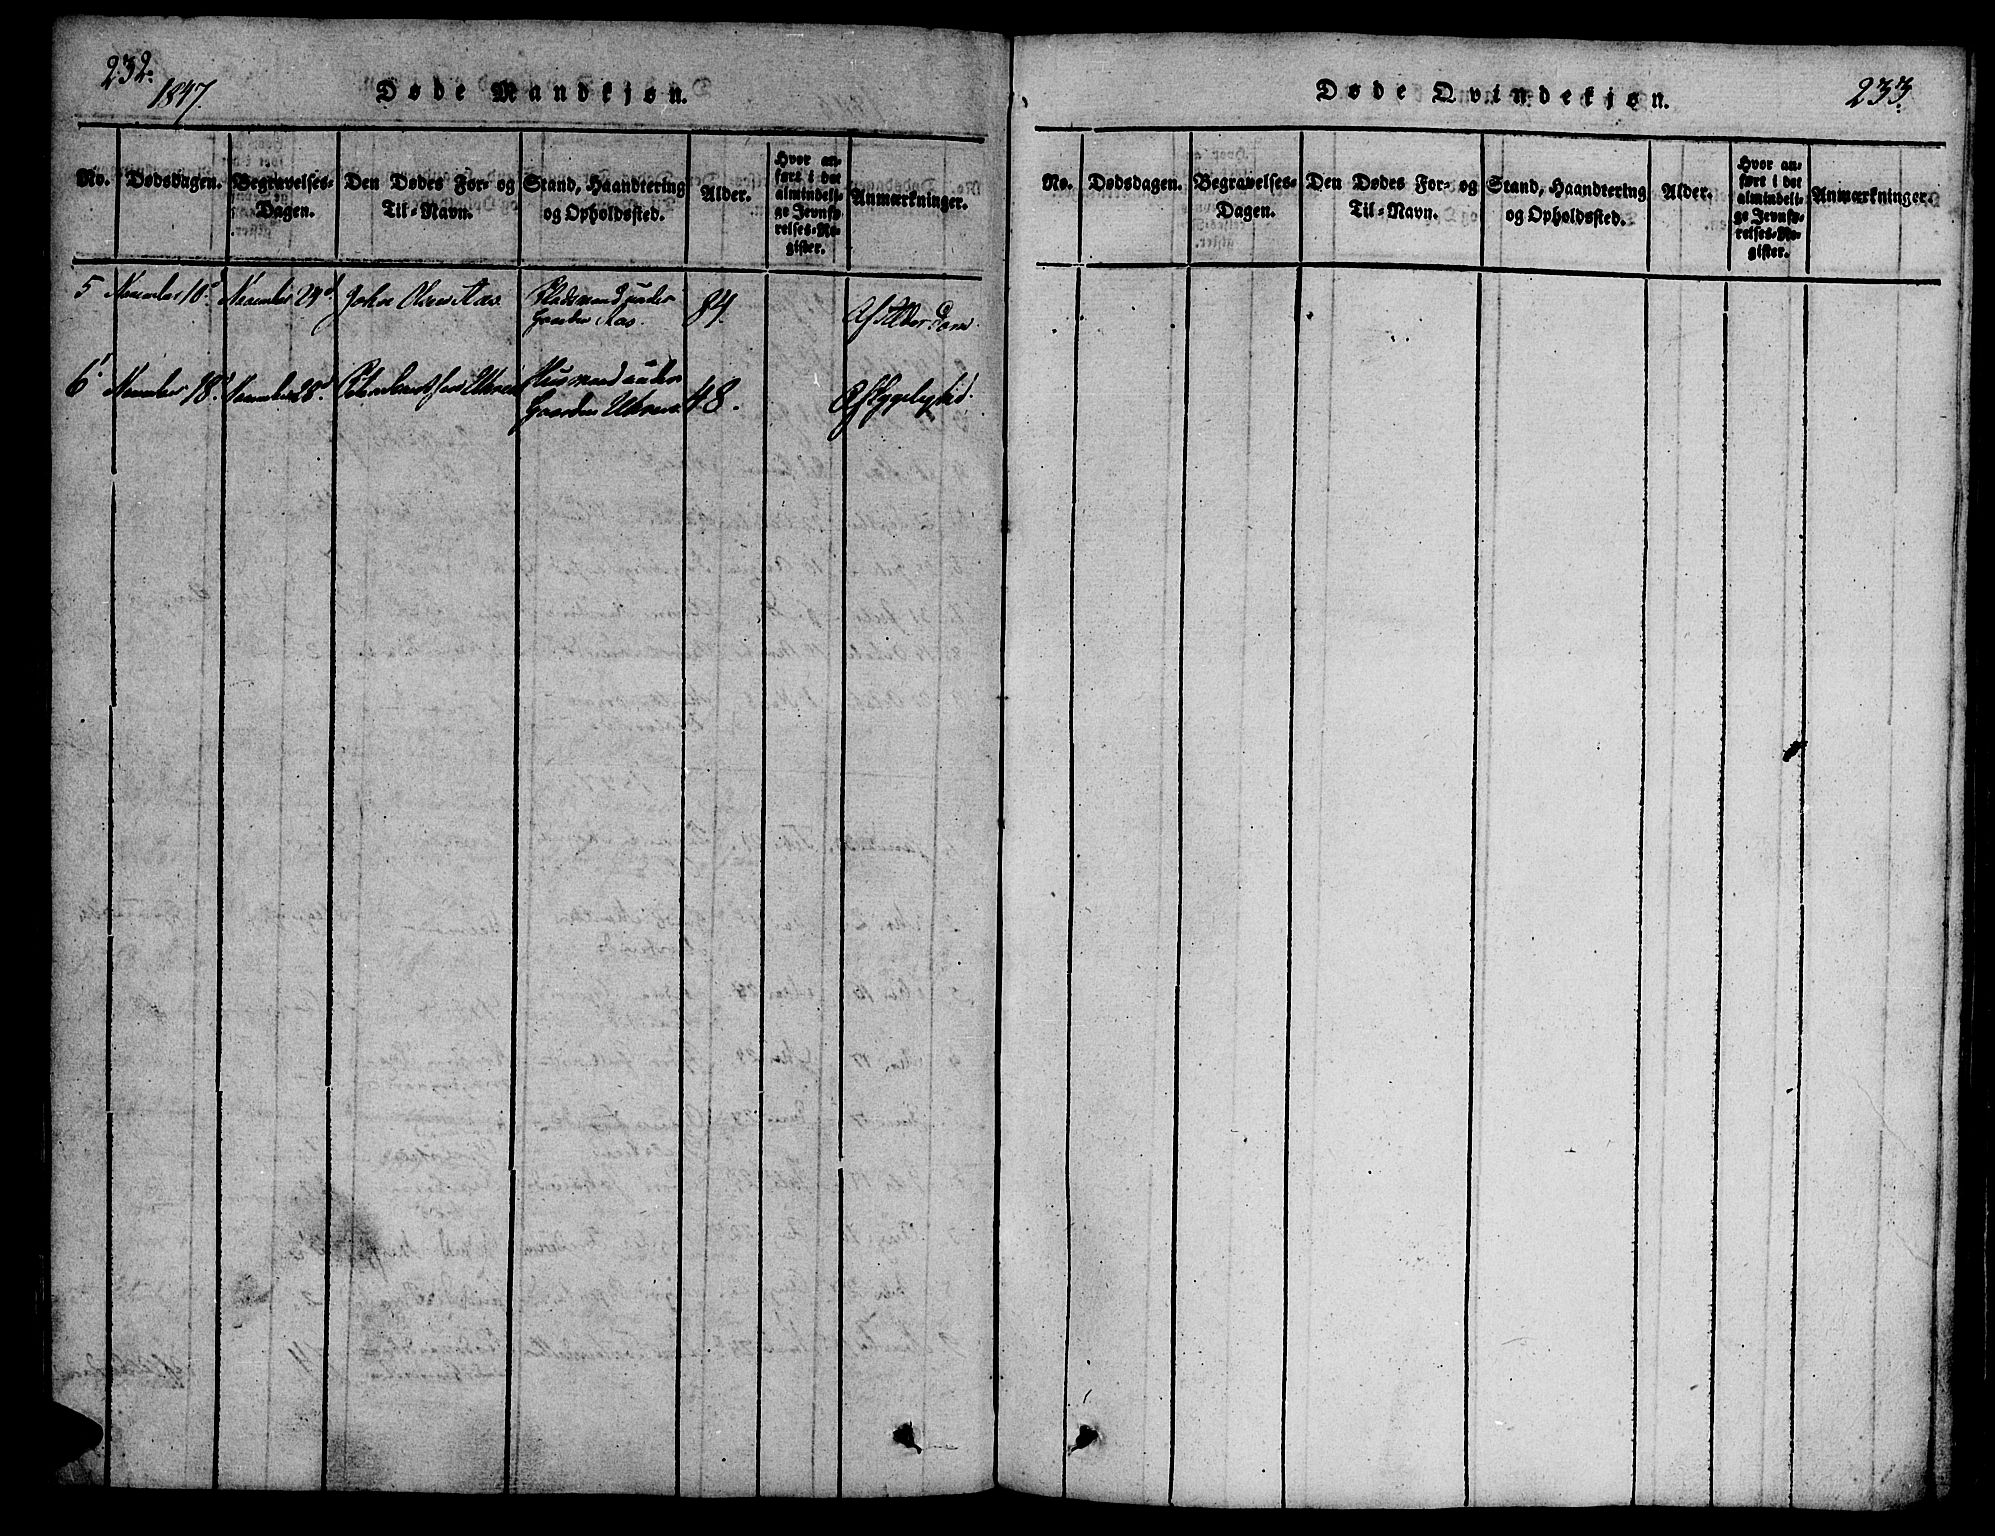 232.
1847.
Døde Mandkjøn.
No.
Dødsdagen.
Begravelses-
Dagen.
Den Dødes For- og
Til-Navn.
Stand, Haandtering
og Opholdssted.
Alder.
Hvor an-
ført i det
almindeli-
ge Jevnfø-
relses-Re-
gister.
Anmærkninger.
5 November 18d November 29d John Olsen Aas. Pladsmand under
Gaarden Aas. 84. Af Alderdom.
6 November 18d November 28d Husmand under
Gaarden 48. Af Sygelighed.
Døde Qvindekjøn.
233.
No.
Dødsdagen.
Begravelses-
Dagen.
Den Dødes For- og
Til-Navn.
Stand, Haandtering
og Opholdssted.
Alder.
Hvor an-
ført i det
almindeli-
ge Jevnfø-
relses-Re-
gister.
Anmærkninger.